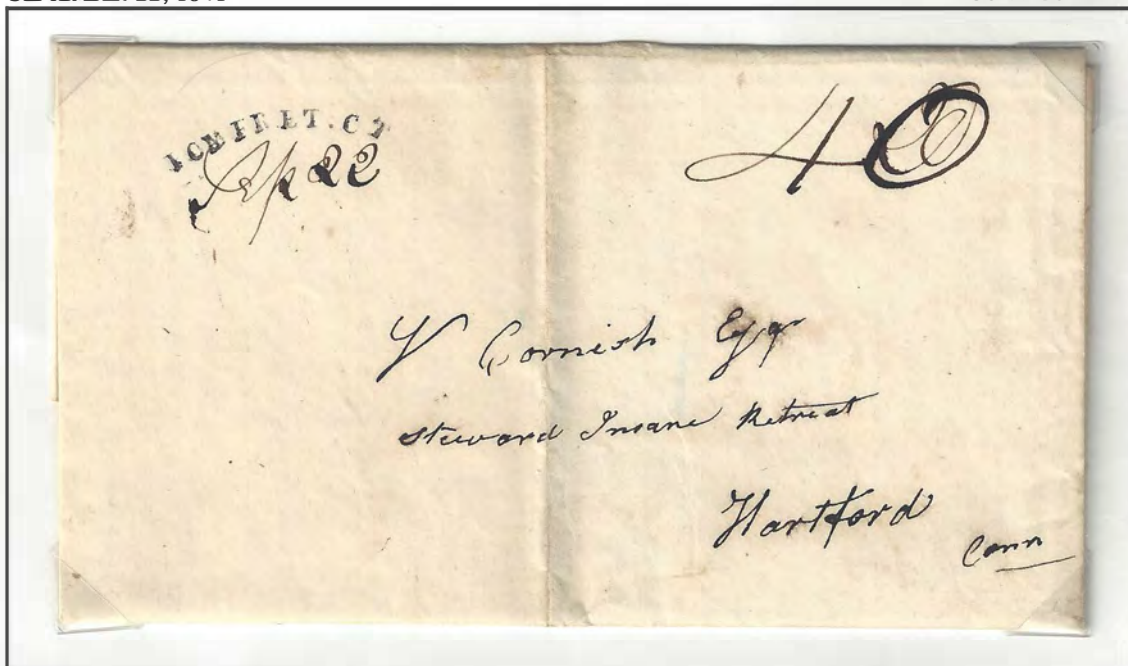 Ap 22
40
Y Cornish Esqr
Steward Insane Retreat
Hartford
Conn